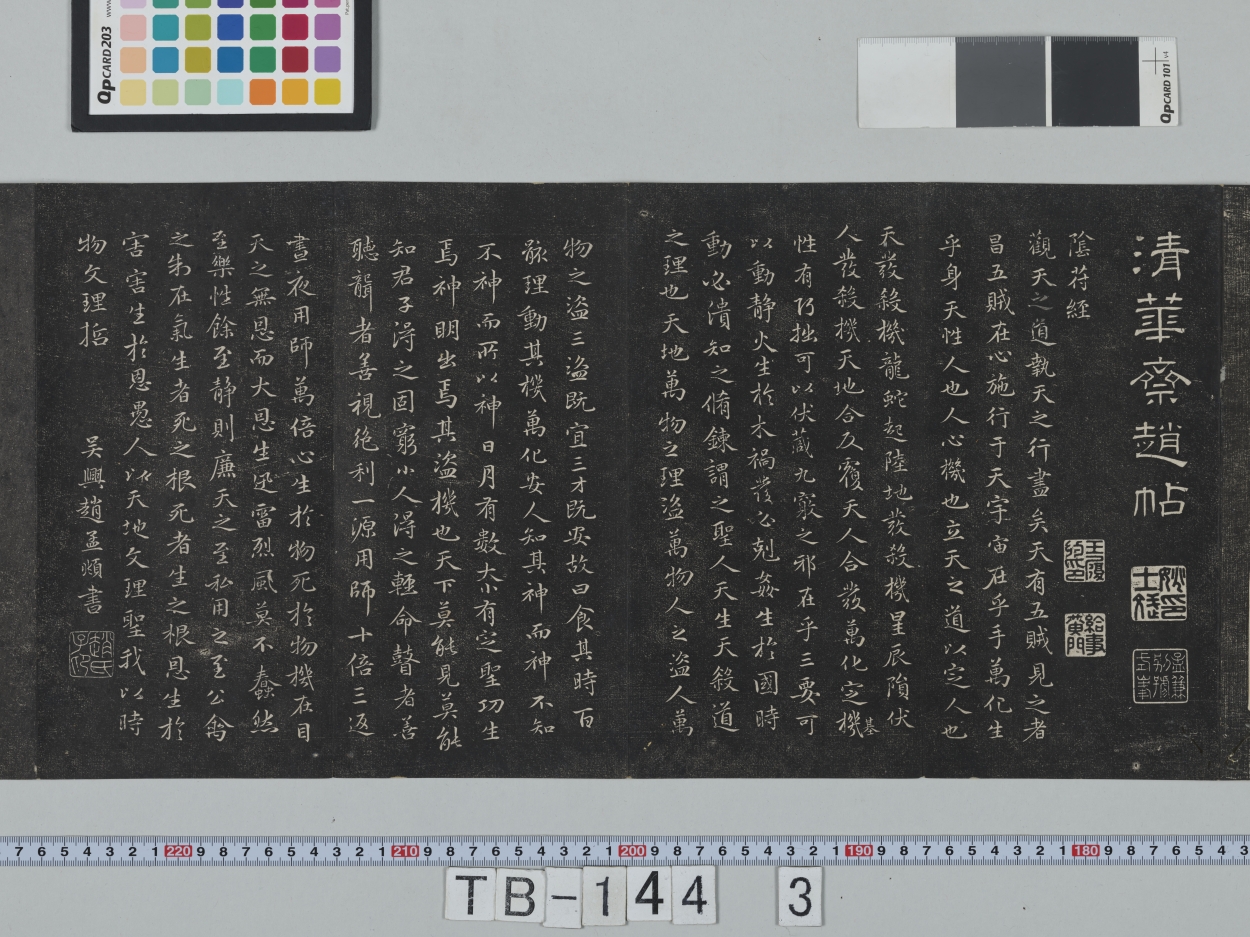 清華齋趙帖
陰苻經
觀天之道執天之行盡矣天有五賊見之者
昌五賊在心施行于天宇宙在乎手萬化生
乎身天性人也人心機也立天之道以定人也
天發殺機龍蛇起陸地發殺機星辰隕伏
人發殺機天地合反覆天人合發萬化定機基
性有巧拙可以伏藏九竅之邪在乎三要可
以動静火生於木禍發必剋姦生於國時
動必潰知之脩鍊謂之聖人天生天殺道
之理也天地萬物之理盜萬物人之盜人萬
物之盜三盜既宜三才既安故曰食其時百
骸理動其機萬化安人知其神而神不知
不神而所以神日月有數大小有定聖功生
焉神明出焉其盜機也天下莫能見莫能
知君子得之固窮小人得之輕命瞽者善
聽聾者善視絕利一源用師十倍三返
晝夜用師萬倍心生於物死於物機在目
天之無恩而大恩生迅雷烈風莫不蠢然
至樂性餘至静則廉天之至私用之至公禽
之制在氣生者死之根死者生之根恩生於
害害生於恩愚人以天地文理聖我以時
物文理哲
吳興趙孟頫書
趙氏子昂
QpCARD 203
QpCARD 101 v4
7 6 5 4 3 2 1 220 9 8 7 6 5 4 3 2 1 210 9 8 7 6 5 4 3 2 1 200 9 8 7 6 5 4 3 2 1 190 9 8 7 6 5 4 3 2 1 180 9 8 7 6 5 4 3
TB-144 3